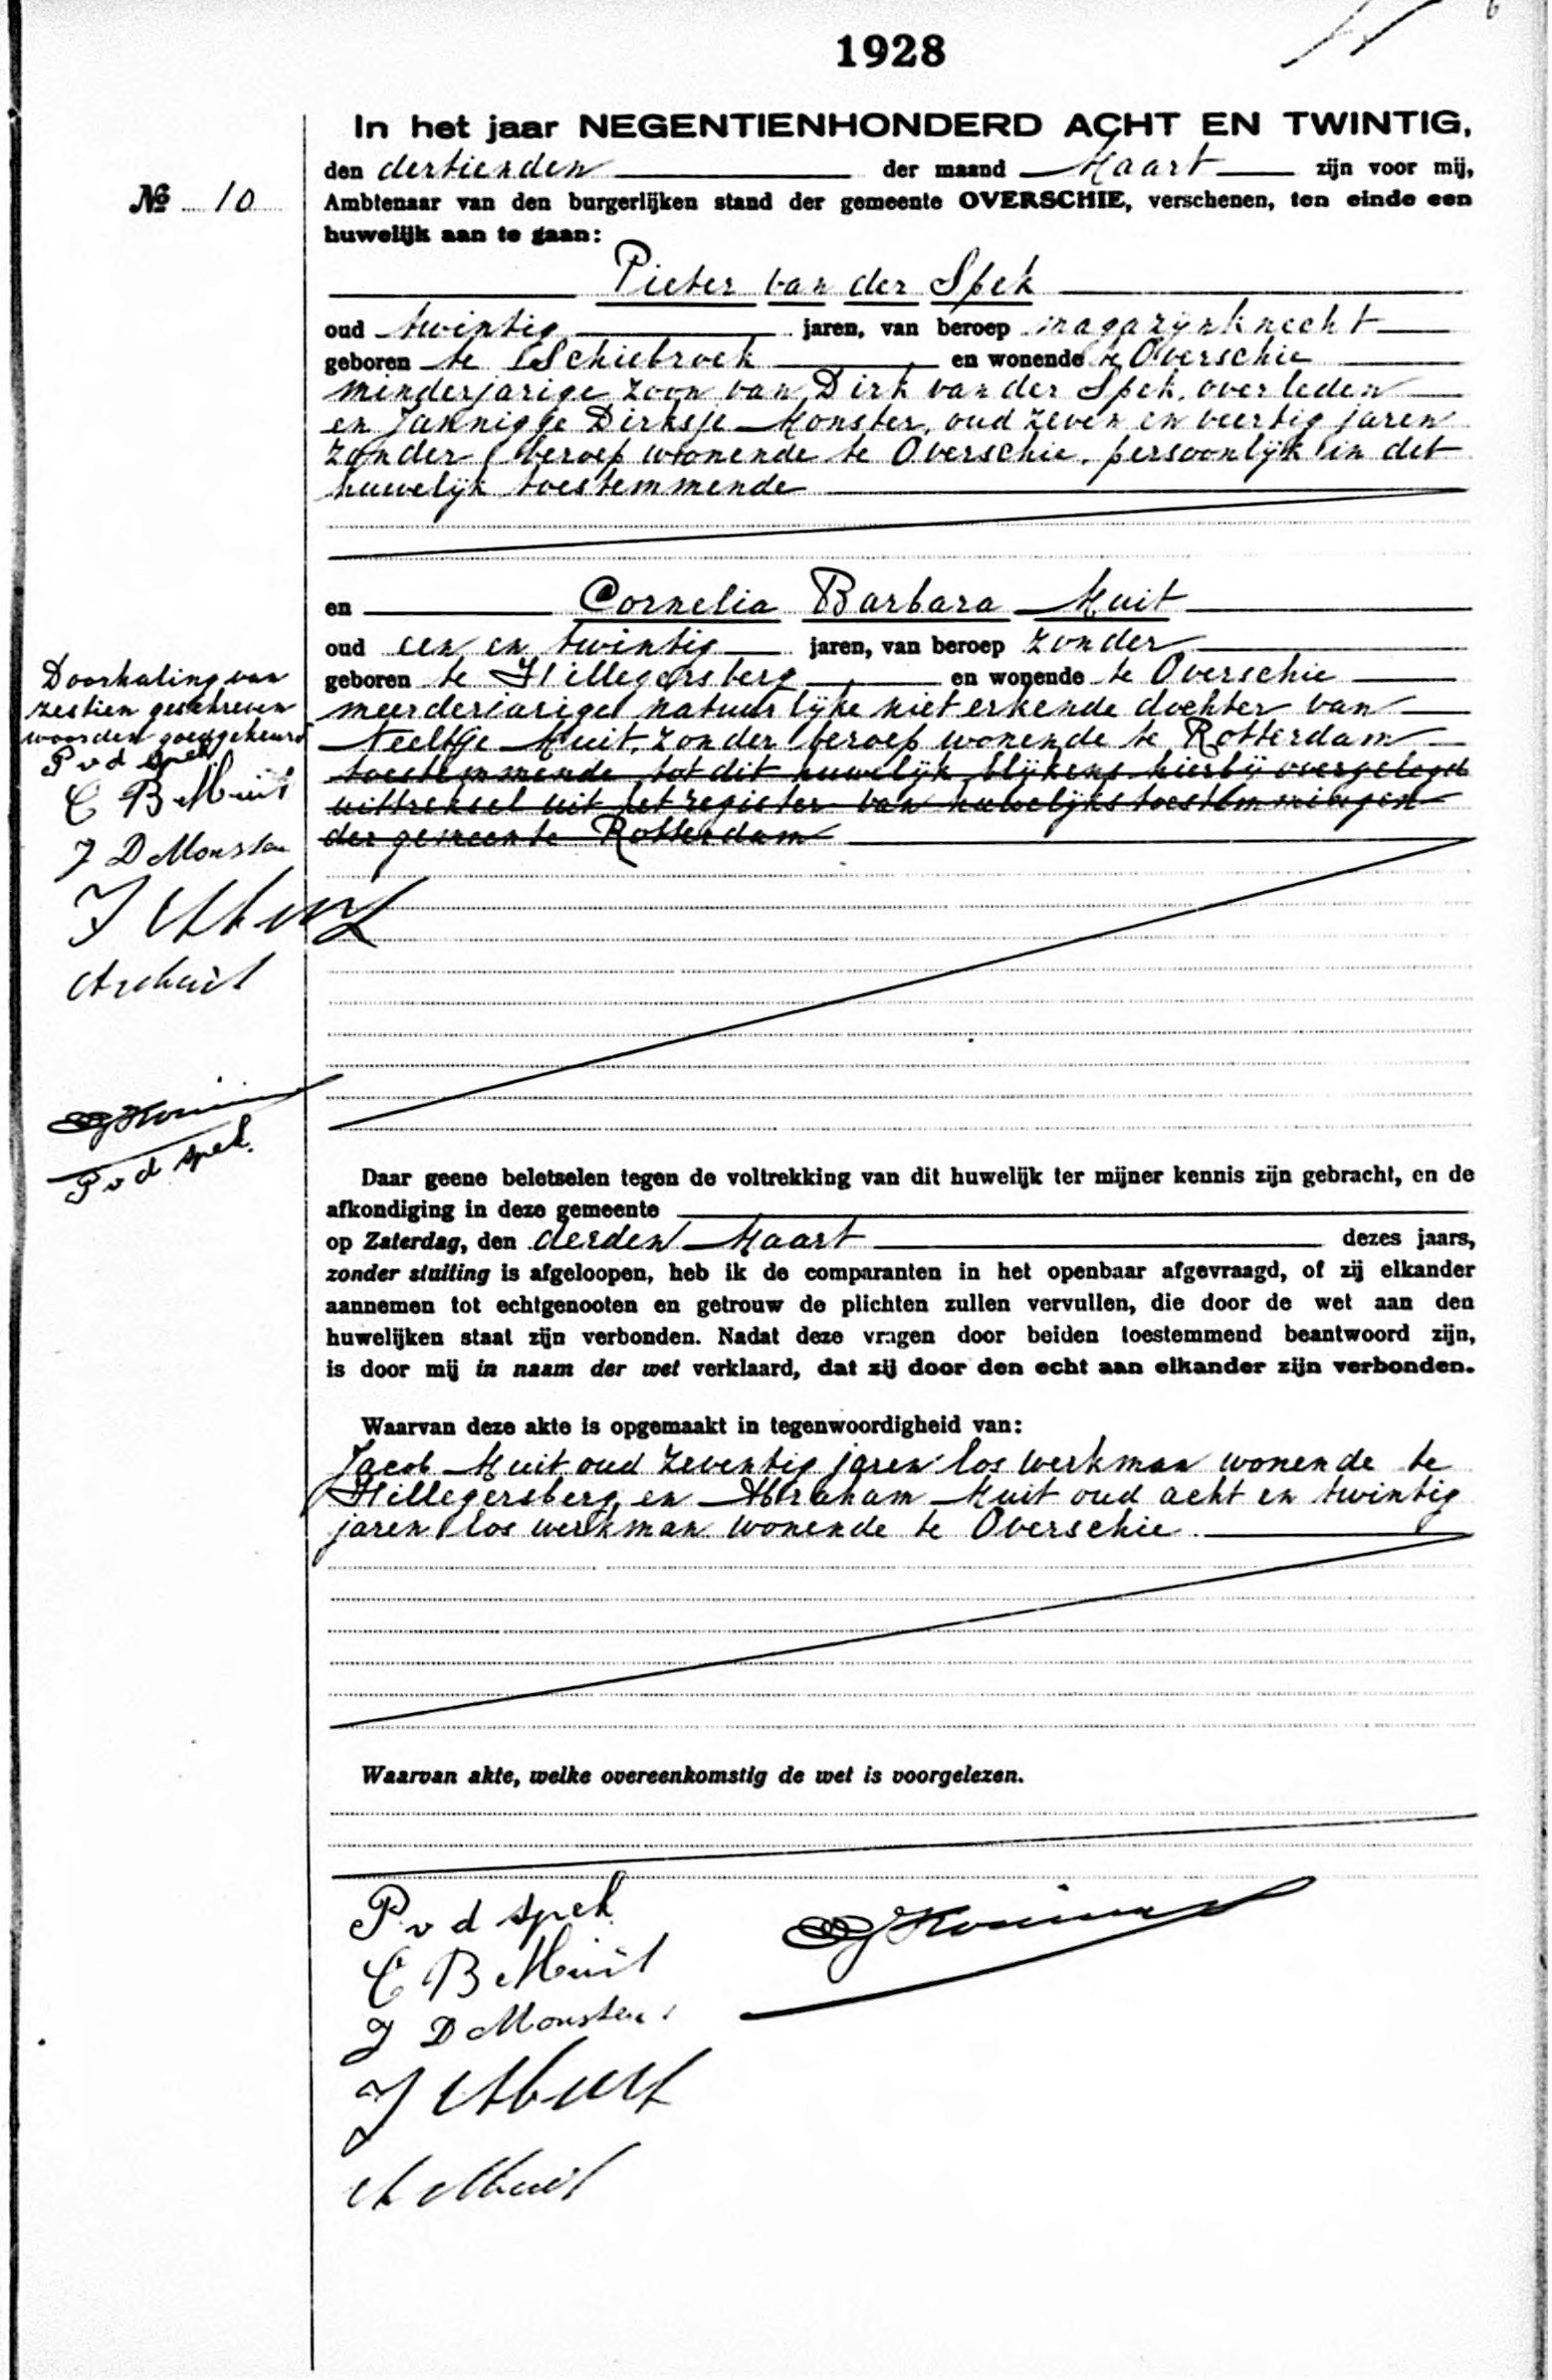 1928
In het jaar NEGENTIENHONDERD ACHT EN TWINTIG,
den dertienden der maand Maart zijn voor mij,
№ 10
Ambtenaar van den burgerlijken stand der gemeente OVERSCHIE, verschenen, ten einde een
huwelijk aan te gaan:
Pieter van der Spek
oud twintig jaren, van beroep magazijnknecht
geboren te Schiebroek en wonende te Overschie
minderjarige zoon van Dirk van der Spek, overleden
en Jannigje Dirksje Monster, oud zeven en veertig jaren
zonder beroep wonende te Overschie, persoonlijk in dit
huwelijk toestemmende
en Cornelia Barbara Muit
oud een en twintig jaren, van beroep zonder
geboren te Hillegersberg en wonende te Overschie
meerderjarige natuurlijke niet erkende dochter van
Neeltje Muit, zonder beroep wonende te Rotterdam
toestemmende tot dit huwelijk blijkens hierbij overgelegd
uittreksel uit het register van huwelijkstoestemmingen
der gemeente Rotterdam
Doorhaling van
zestien geschreven
woorden goedgekeurd
P v d Spek
C B Muit
J D Monster
J Muit
A Muit
P v d Spek
Daar geene beletselen tegen de voltrekking van dit huwelijk ter mijner kennis zijn gebracht, en de
afkondiging in deze gemeente
op Zaterdag, den derden Maart dezes jaars,
zonder stuiting is afgeloopen, heb ik de comparanten in het openbaar afgevraagd, of zij elkander
aannemen tot echtgenooten en getrouw de plichten zullen vervullen, die door de wet aan den
huwelijken staat zijn verbonden. Nadat deze vragen door beiden toestemmend beantwoord zijn,
is door mij in naam der wet verklaard, dat zij door den echt aan elkander zijn verbonden.
Waarvan deze akte is opgemaakt in tegenwoordigheid van:
Jacob Muit oud zeventig jaren los werkman wonende te
Hillegersberg, en Abraham Muit oud acht en twintig
jaren los werkman wonende te Overschie
Waarvan akte, welke overeenkomstig de wet is voorgelezen.
P v d Spek
C B Muit
J D Monster
J Muit
A Muit